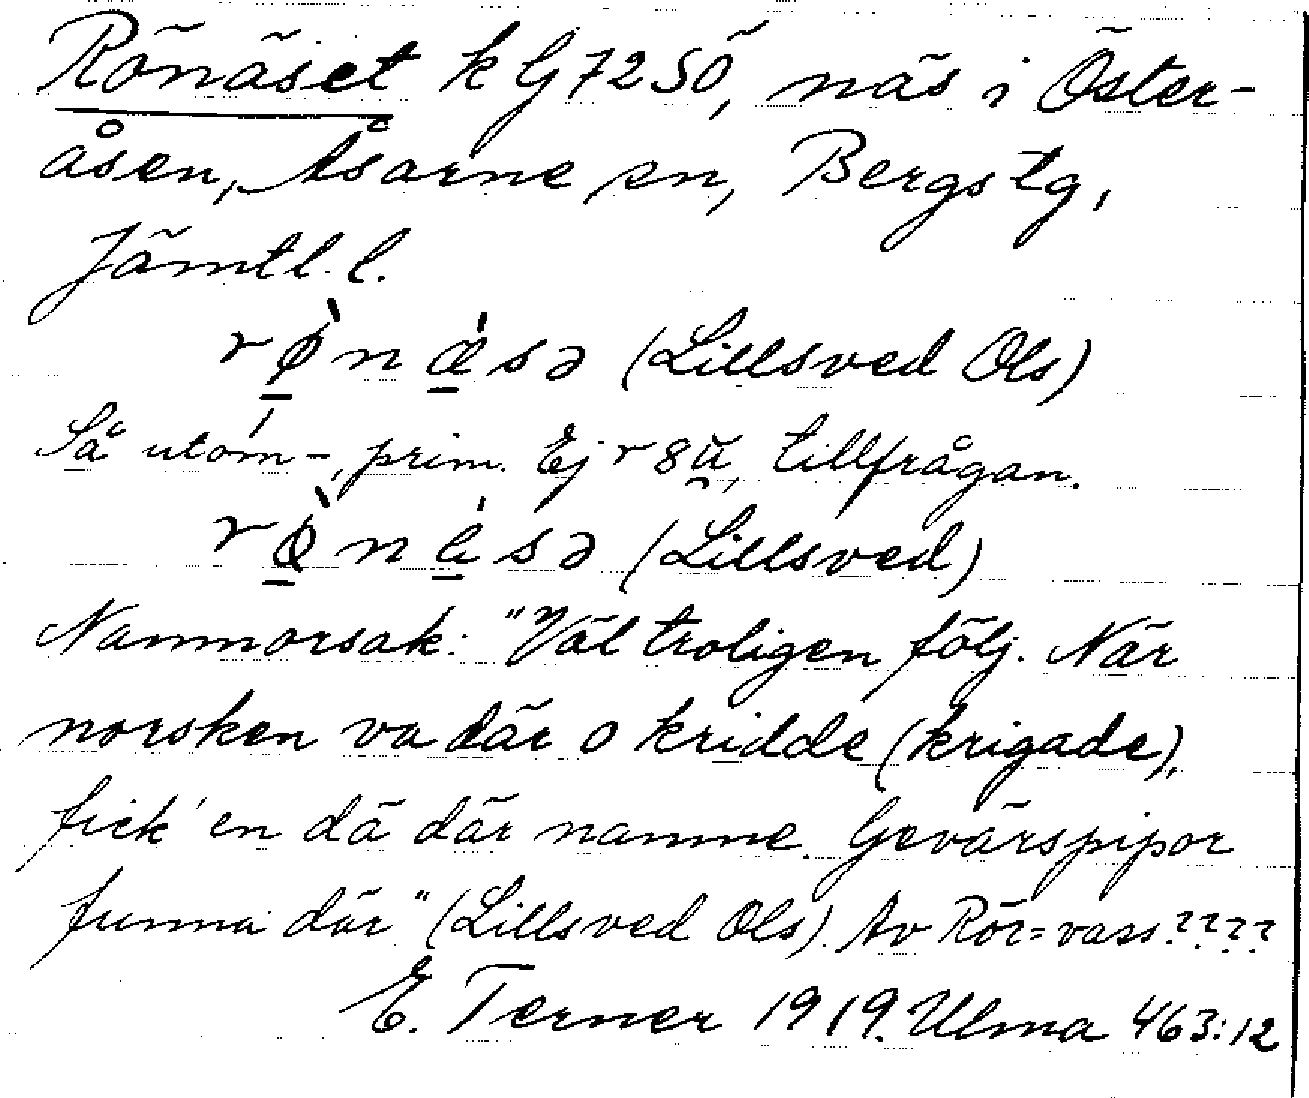 Rönäset k G 72 SÖ, näs i Öster-
åsen, Åsarne sn, Bergs tg,
Jämtl. l.
rø̱̀nǽ̱sə (Lillsved Ols)
Så utom-, prim. Ej r8ä, tillfrågan.
rø̱̀nè̱sə (Lillsved)
Namnorsak: "Väl troligen följ. När
norsken va där o kridde (krigade),
fick' en dä där namne. Gevärspipor
funna där" (Lillsved Ols). Av Rör=vass????
E. Terner 1919. Ulma 463:12